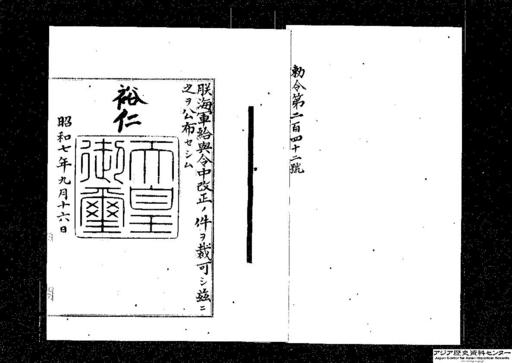 勅令第二百四十二號
朕海軍給與令中改正ノ件ヲ裁可シ玆ニ
之ヲ公布セシム
裕仁
天皇御璽
昭和七年九月十六日
アジア歴史資料センター
Japan Center for Asian Historical Records